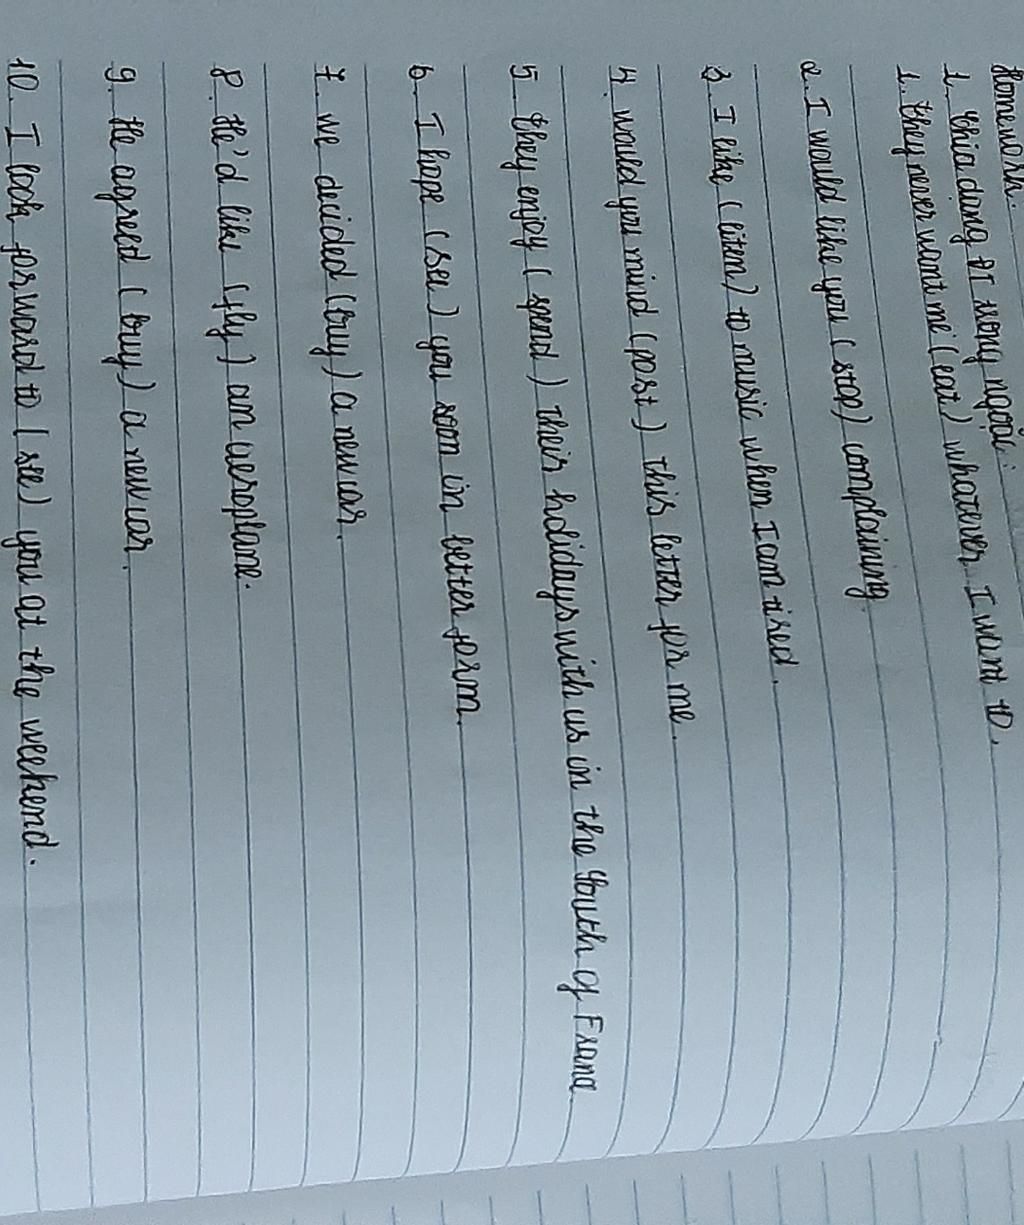 Homework:
1. Chia dạng ĐT trong ngoặc:
1. They never want me (eat) whatever I want to.
2. I would like you (stop) complaining
3. I like (liten) to music when I am tired.
4. Would you mind (post) this letter for me.
5. They enjoy (spend) their holidays with us in the South of Franc
6. I hope (see) you soon in better form.
7. We decided (buy) a new car.
8. He'd like (fly) an aeroplane.
9. He agreed (buy) a new car.
10. I look forward to (see) you at the weekend.